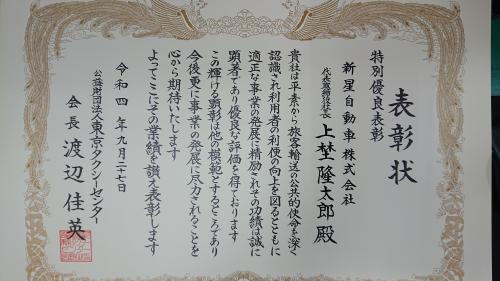 表彰状
特別優良表彰
新星自動車株式会社
代表取締役社長 上埜隆太郎 殿
貴社は平素から旅客輸送の公共的使命を深く
認識され利用者の利便の向上を図るとともに
適正な事業の発展に精励されその功績は誠に
顕著であり優良な評価を得ております
この輝ける顕彰は他の模範とするところであり
今後更に事業の発展に尽力されることを
心から期待いたします
よってここにその業績を讃え表彰します
令和四年九月二十七日
公益財団法人東京タクシーセンター
会長 渡辺佳英